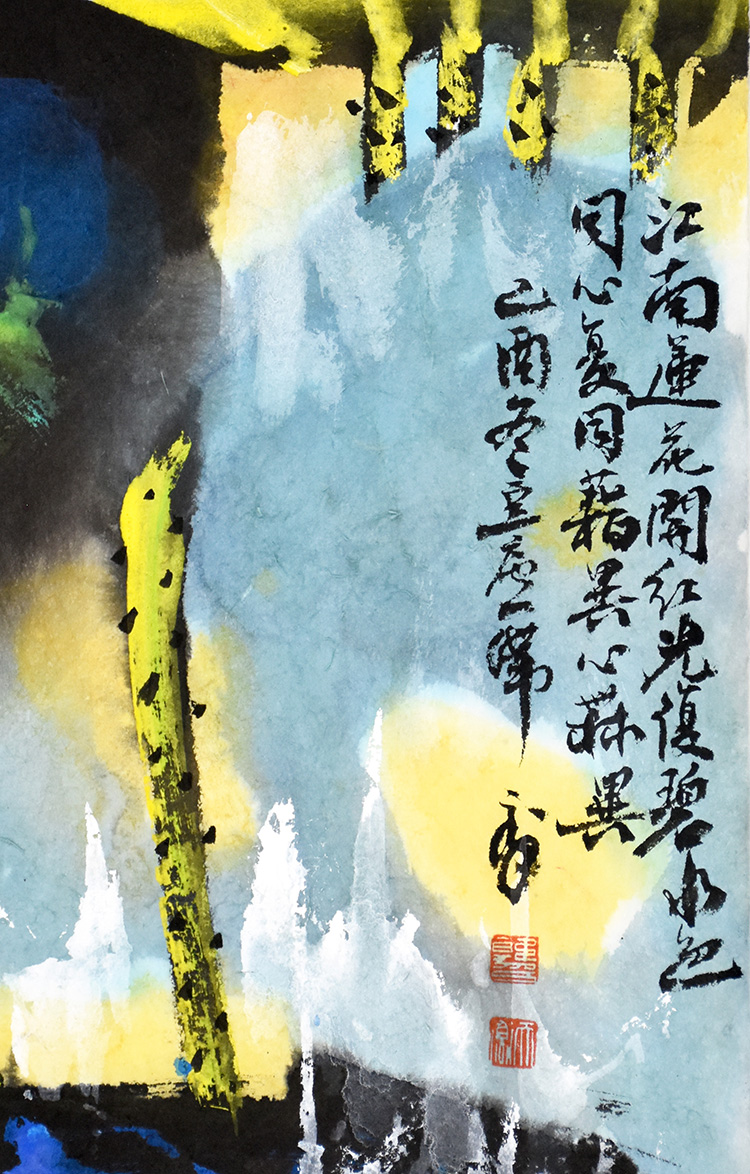 江南蓮花開紅光復碧水色
同心复同藕異心無異
乙酉冬